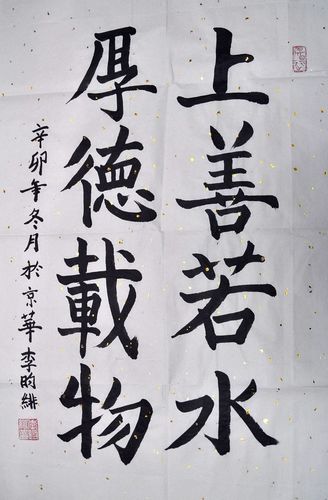 上善若水
厚德載物
辛卯年冬月於京華李昀緋